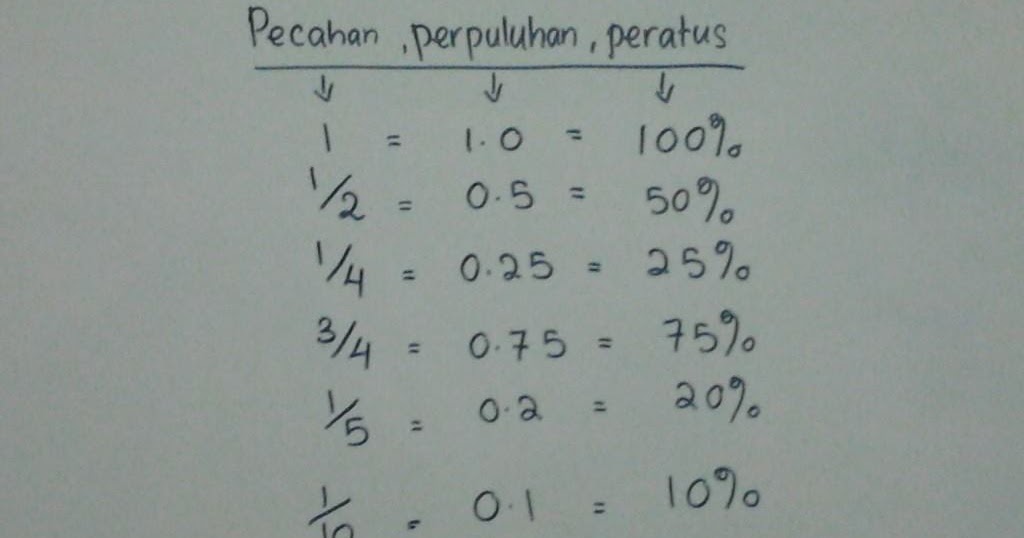 Pecahan , perpuluhan , peratus
↓ ↓ ↓
1 = 1.0 = 100%
1/2 = 0.5 = 50%
1/4 = 0.25 = 25%
3/4 = 0.75 = 75%
1/5 = 0.2 = 20%
1/10 = 0.1 = 10%